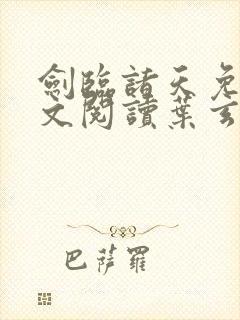 劍臨諸天免
文閱讀葉玄
巴薩羅